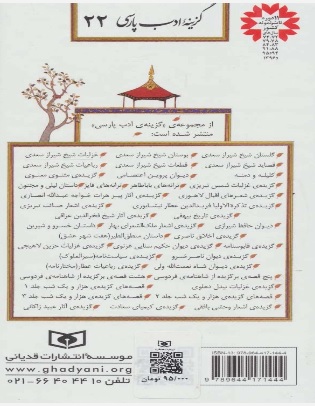 گزینهٔ ادب پارسی ۲۲
از مجموعه‌ی «گزینه‌ی ادب پارسی»
منتشر شده است:
گلستان شیخ شیراز سعدی بوستان شیخ شیراز سعدی غزلیات شیخ شیراز سعدی
قصاید شیخ شیراز سعدی قطعات شیخ شیراز سعدی رباعیات شیخ شیراز سعدی
کلیله و دمنه دیوان پروین اعتصامی گزیده‌ی مثنوی معنوی
گزیده‌ی غزلیات شمس تبریزی ترانه‌های باباطاهر ترانه‌های فایز داستان لیلی و مجنون
گزیده‌ی شعرهای اقبال لاهوری گزیده‌ی آثار پیر هرات خواجه عبدالله انصاری
گزیده‌ی تذکرةالاولیا فریدالدین عطار نیشابوری گزیده‌ی اشعار صائب تبریزی
گزیده‌ی تاریخ بیهقی گزیده‌ی آثار شیخ فخرالدین عراقی
دیوان حافظ شیرازی گزیده‌ی اشعار ملک‌الشعرای بهار داستان خسرو و شیرین
گزیده‌ی اخلاق ناصری داستان منطق‌الطیر (هفت شهر عشق)
گزیده‌ی قابوسنامه گزیده‌ی دیوان حکیم سنایی غزنوی گزیده‌ی غزلیات حزین لاهیجی
گزیده‌ی دیوان ناصرخسرو گزیده‌ی سیاست‌نامه (سیرالملوک)
گزیده‌ی دیوان شاه نعمت‌الله ولی گزیده‌ی رباعیات عطار (مختارنامه)
پنج قصه‌ی برگزیده از شاهنامه‌ی فردوسی هشت قصه‌ی برگزیده از شاهنامه‌ی فردوسی
گزیده‌ی غزلیات بیدل دهلوی قصه‌های گزیده‌ی هزار و یک شب جلد ۱
قصه‌های گزیده‌ی هزار و یک شب جلد ۲ قصه‌های گزیده‌ی هزار و یک شب جلد ۳
گزیده‌ی اشعار وحشی بافقی گزیده‌ی کیمیای سعادت گزیده‌ی آثار عبید زاکانی
موسسه انتشارات قدیانی
www.ghadyani.org
تلفن ۱۰ ۴۴ ۴۰ ۶۶-۰۲۱
۹۵/۰۰۰ تومان
9789644171444